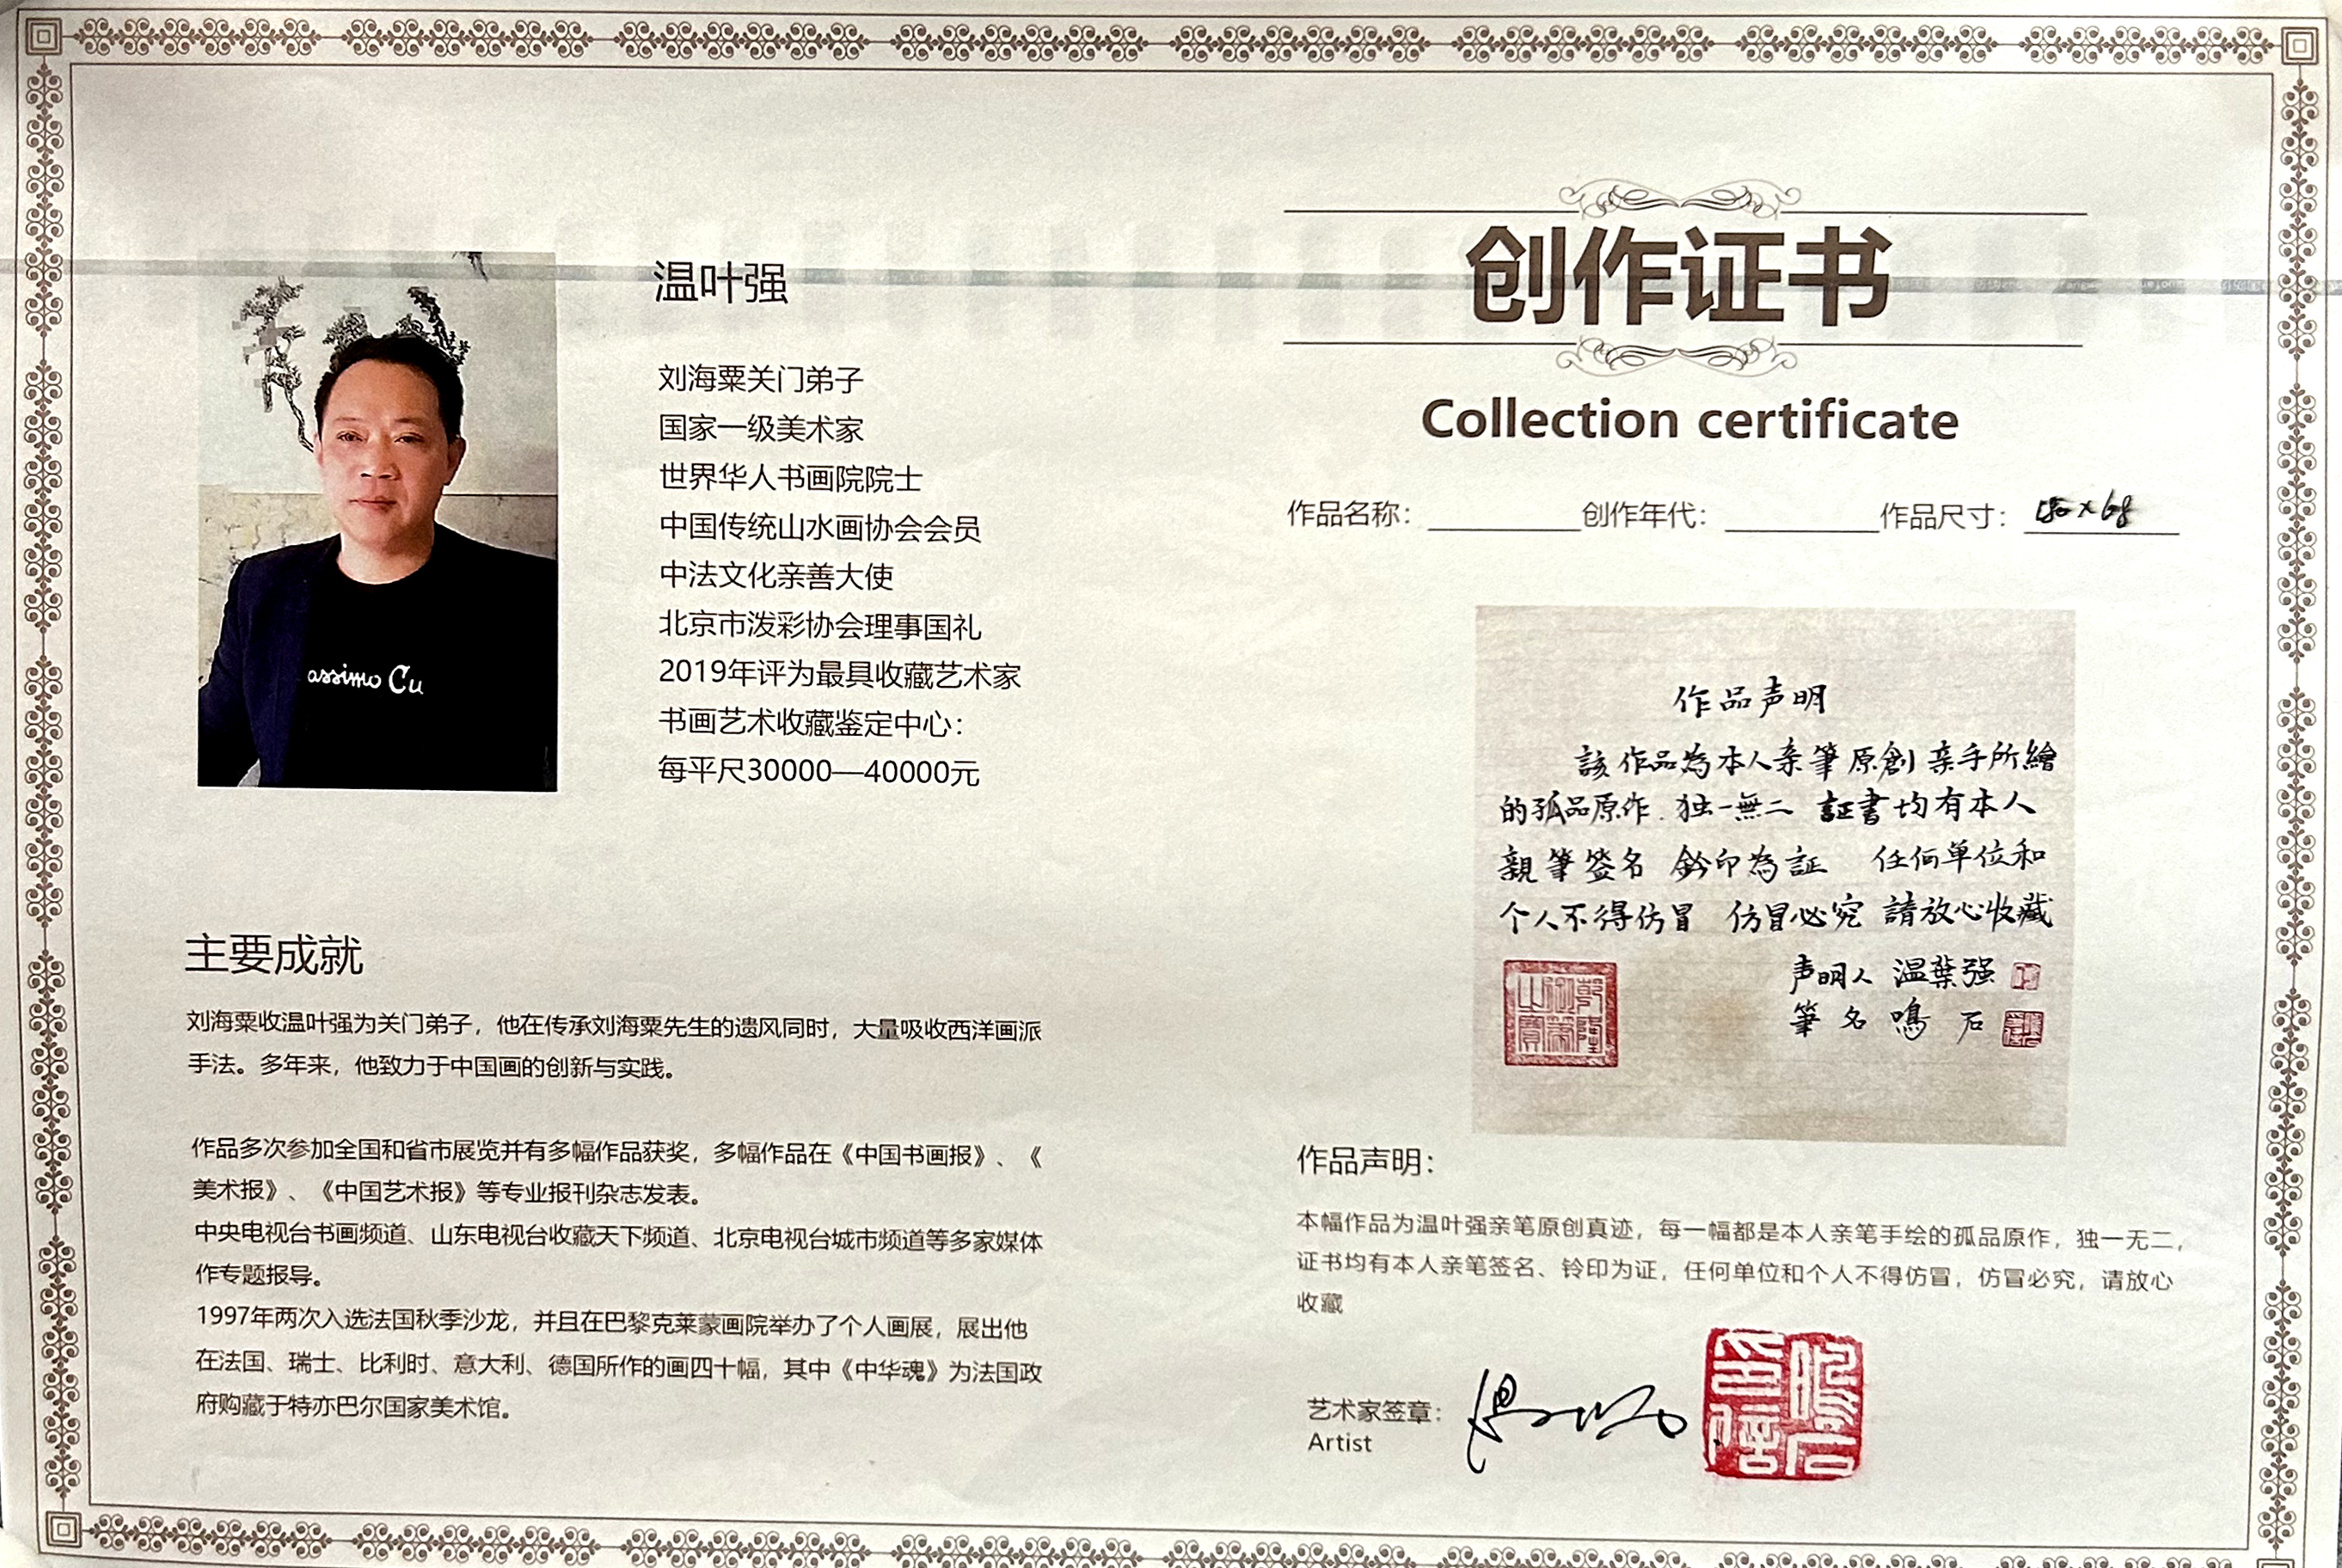 温叶强
刘海粟关门弟子
国家一级美术家
世界华人书画院院士
中国传统山水画协会会员
中法文化亲善大使
北京市泼彩协会理事国礼
2019年评为最具收藏艺术家
书画艺术收藏鉴定中心：
每平尺30000—40000元
assimo Cu
主要成就
刘海粟收温叶强为关门弟子，他在传承刘海粟先生的遗风同时，大量吸收西洋画派
手法。多年来，他致力于中国画的创新与实践。
作品多次参加全国和省市展览并有多幅作品获奖，多幅作品在《中国书画报》、《
美术报》、《中国艺术报》等专业报刊杂志发表。
中央电视台书画频道、山东电视台收藏天下频道、北京电视台城市频道等多家媒体
作专题报导。
1997年两次入选法国秋季沙龙，并且在巴黎克莱蒙画院举办了个人画展，展出他
在法国、瑞士、比利时、意大利、德国所作的画四十幅，其中《中华魂》为法国政
府购藏于特亦巴尔国家美术馆。
创作证书
Collection certificate
作品名称：创作年代：作品尺寸：×68
作品声明
該作品為本人亲筆原創 亲手所繪
的孤品原作．独一無二 証書均有本人
親筆签名 鈐印為証 任何单位和
个人不得仿冒 仿冒必究 請放心收藏
声明人 温葉强
筆名 鳴石
作品声明：
本幅作品为温叶强亲笔原创真迹，每一幅都是本人亲笔手绘的孤品原作，独一无二，
证书均有本人亲笔签名、铃印为证，任何单位和个人不得仿冒，仿冒必究，请放心
收藏
艺术家签章：
Artist